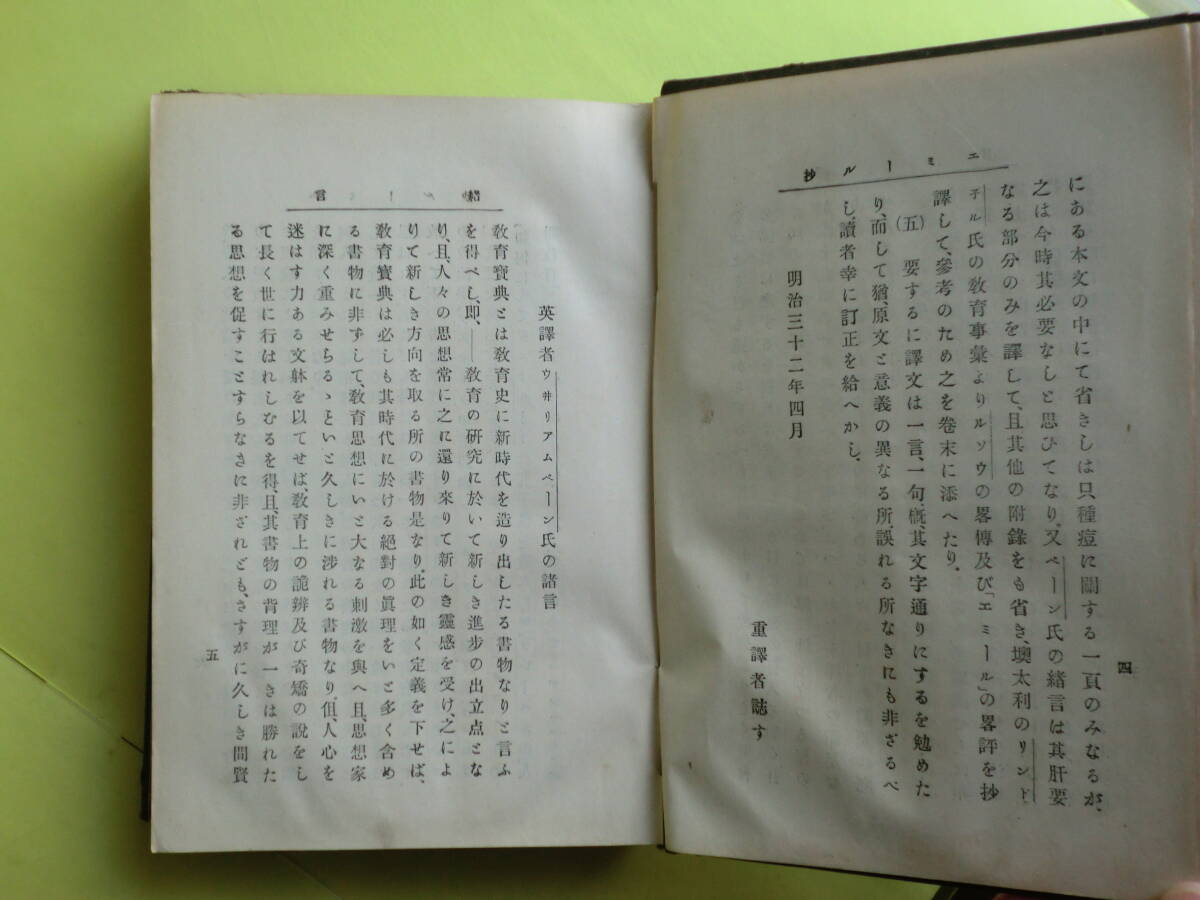 エミール抄
四
にある本文の中にて省きしは只、種痘に關する一頁のみなるが、
之は今時其必要なしと思ひてなり、又ペーン氏の緒言は其肝要
なる部分のみを譯して、且其他の附錄をも省き、墺太利のリンド
子ル氏の敎育事彙よりルソウの畧傳及び「エミール」の畧評を抄
譯して、參考のため之を卷末に添へたり。
(五)　要するに譯文は一言、一句槪、其文字通りにするを勉めた
り、而して猶、原文と意義の異なる所、誤れる所なきにも非ざるべ
し、讀者幸に訂正を給へかし。
明治三十二年四月
重譯者誌す
緖言
英譯者ウヰリアムペーン氏の諸言
敎育寶典とは敎育史に新時代を造り出したる書物なりと言ふ
を得べし、即、──敎育の研究に於いて新しき進步の出立点とな
り、且、人々の思想常に之に還り來りて新しき靈感を受け、之によ
りて新しき方向を取る所の書物是なり。此の如く定義を下せば、
敎育寶典は必しも其時代に於ける絕對の眞理をいと多く含め
る書物に非ずして、敎育思想にいと大なる刺激を與へ、且、思想家
に深く重みせらるゝといと久しきに涉れる書物なり、但、人心を
迷はす力ある文躰を以てせば、敎育上の詭辨及び奇矯の說をし
て長く世に行はれしむるを得、且、其書物の背理が一きは勝れた
る思想を促すことすらなきに非ざれども、さすがに久しき間賢
五